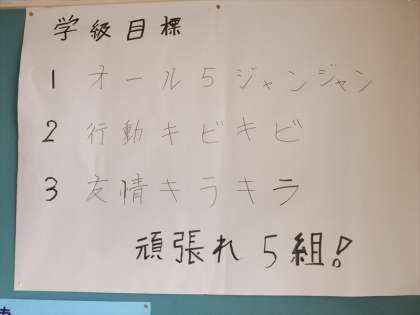 学級目標
1 オール5ジャンジャン
2 行動キビキビ
3 友情キラキラ
頑張れ5組!